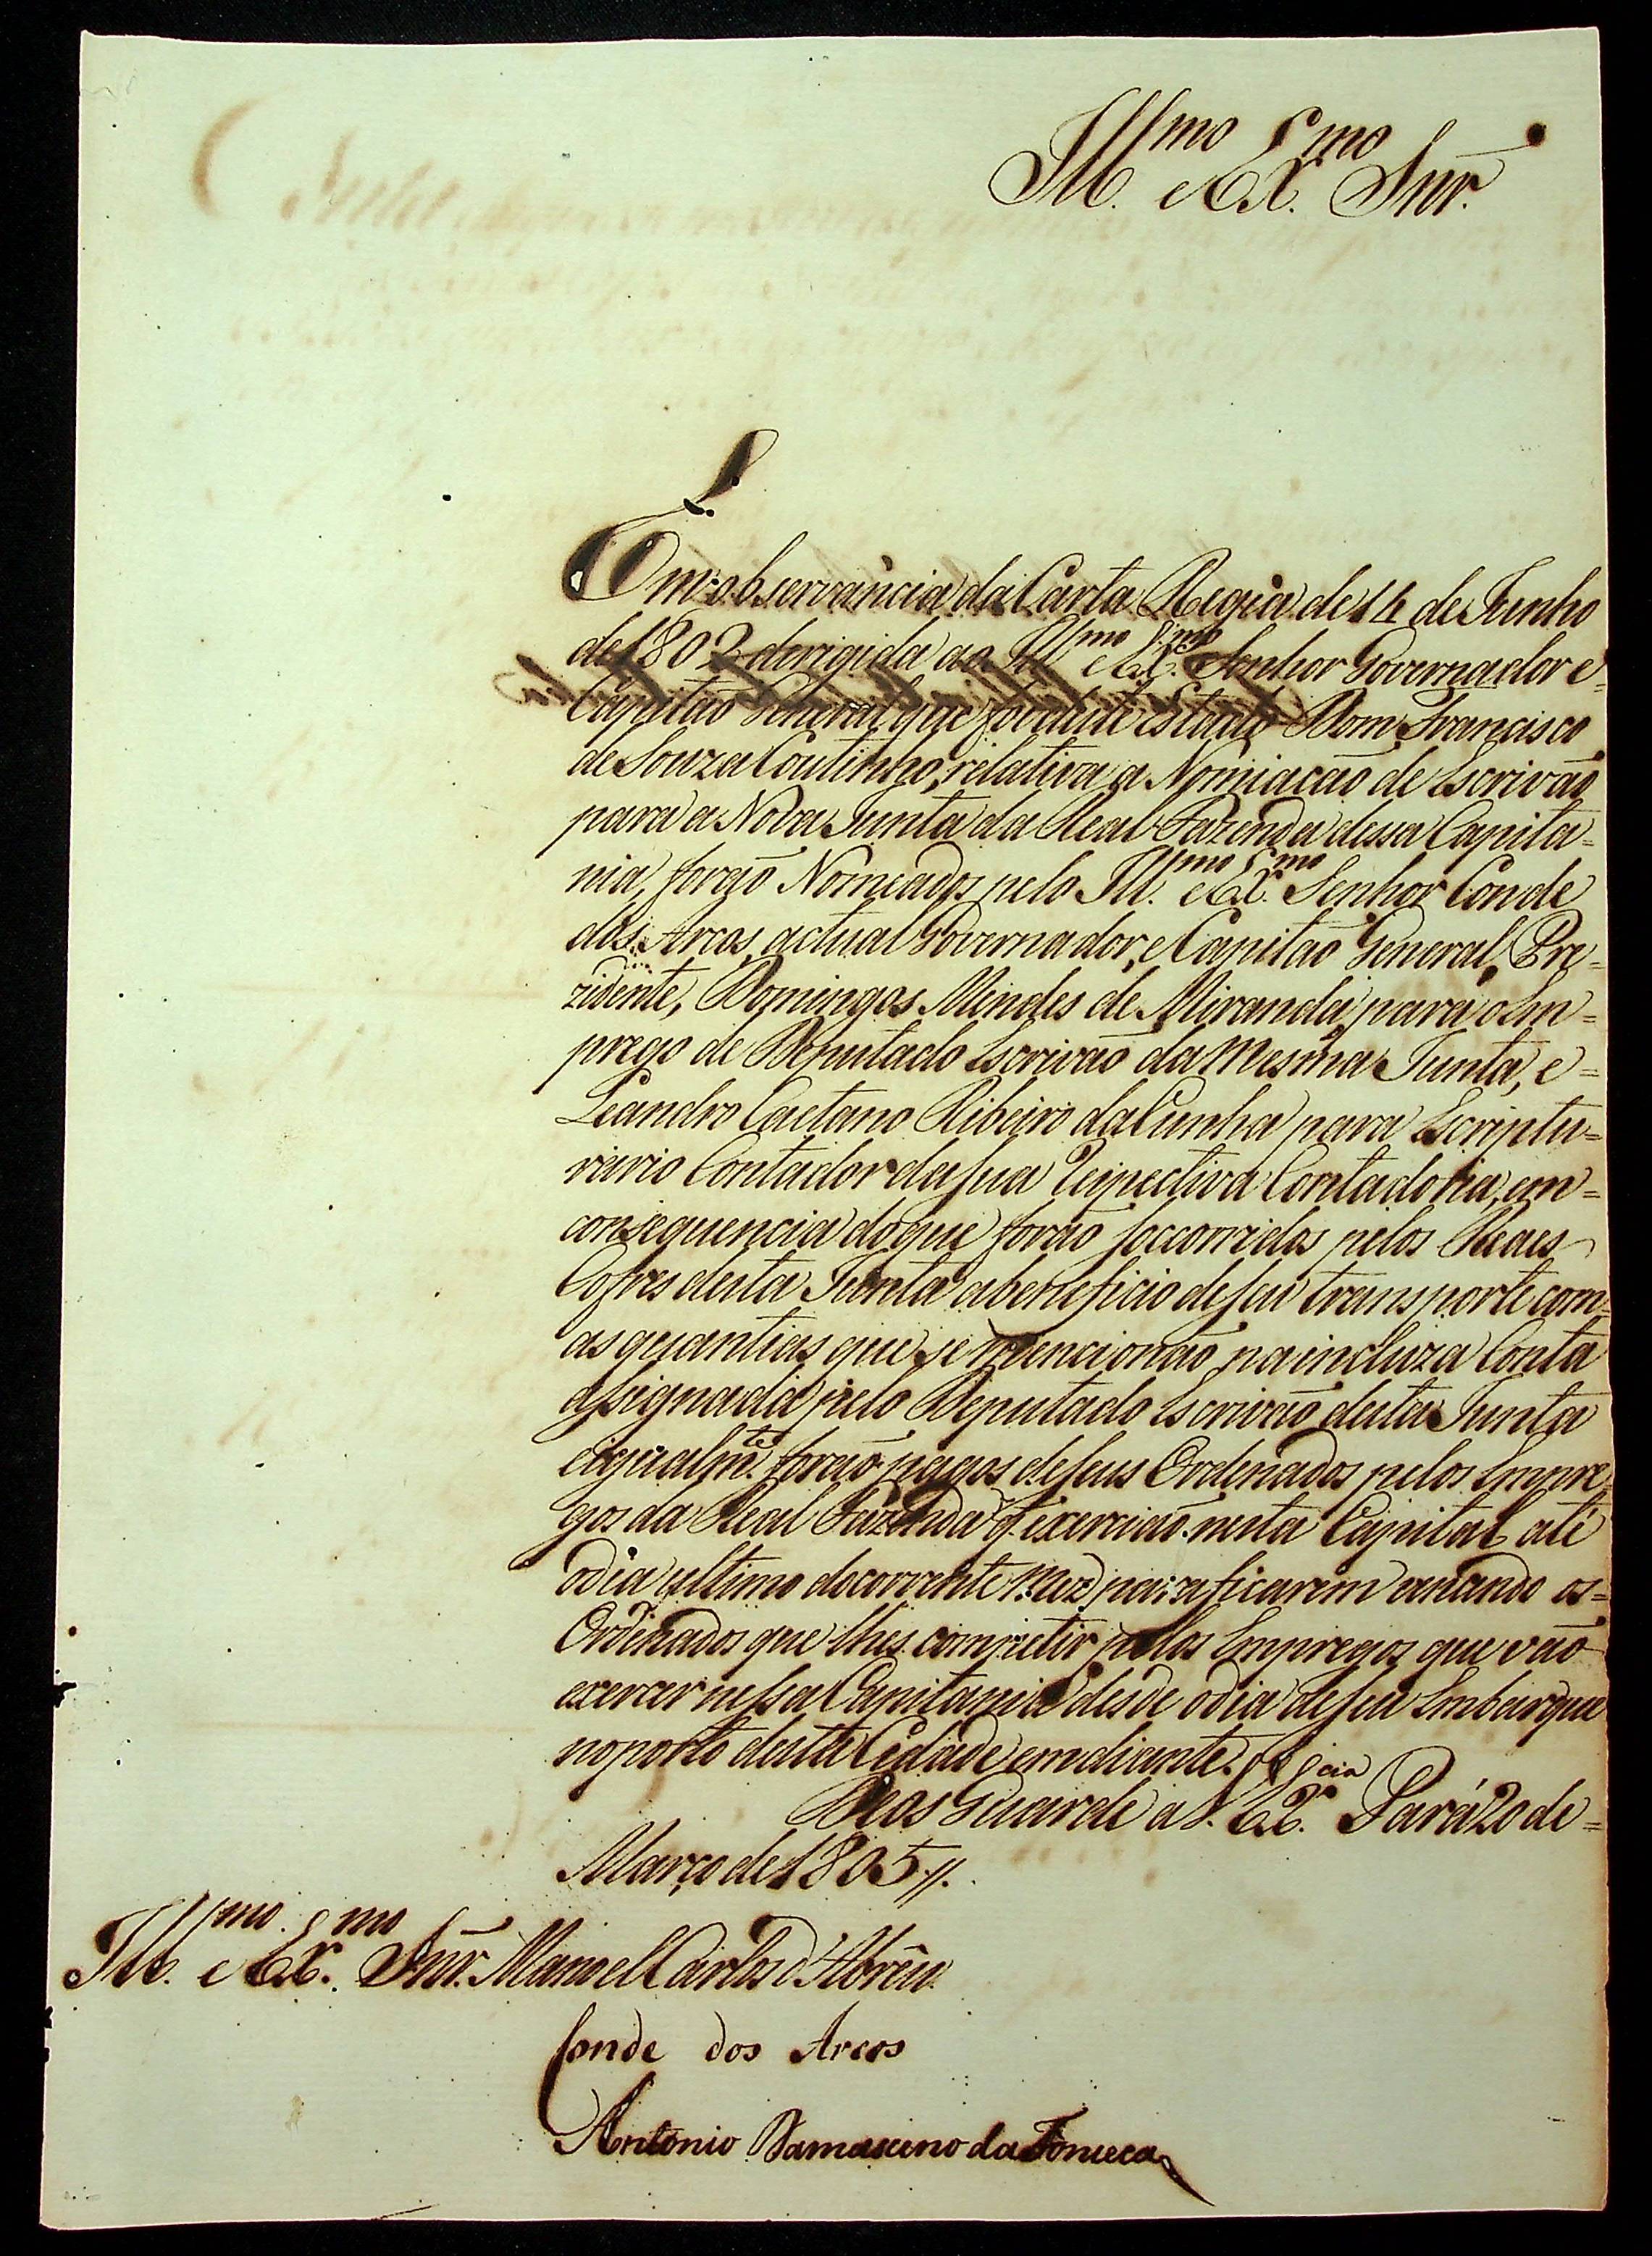 Ill.mo e Ex.mo Snr.
Em observancia da Carta Regia de 14 de Junho
de 1802 derigida ao Ill.mo e Ex.mo Senhor Governador e=
Capitaõ General que foi deste Estado Dom Francisco
de Souza Coutinho, relativa a Nomiacaõ de Escrivaõ
para a Nova Junta da Real Fazenda dessa Capita=
nia, foraõ Nomeados pelo Ill.mo e Ex.mo Senhor Conde
dos Arcos, actual Governador, e Capitaõ General, Pre=
zidente, Domingos Mendes de Miranda, para o Em=
prego de Deputado Escrivaõ da mesma Junta, e=
Leandro Caetano Ribeiro da Cunha para Escriptu=
rario Contador da sua respectiva Contadoria, em=
consequencia do que foraõ soccorridos pelos Reaes
Cofres desta Junta a beneficio de seu transporte com=
as quantias que se mencionaõ na incluza Conta
assignada pelo Deputado Escrivaõ desta Junta
e igualm.te foraõ pagos de seus Ordenados pelos Empre=
gos da Real Fazenda q̃ exerciaõ nesta Capital até
o dia ultimo do corrente Mez para ficarem vencendo os=
Ordenados que lhes competir pelos Empregos que vaõ
exercer nessa Capitania desde o dia de seu Embarque
no porto desta Cidade em diante.
Deos Guarde a V. Ex.cia Pará 20 de=
Março de 1805 //.
Ill.mo e Ex.mo Snr. Manoel Carlos d'Abrêu
Conde dos Arcos
Antonio Damasceno da Fonseca